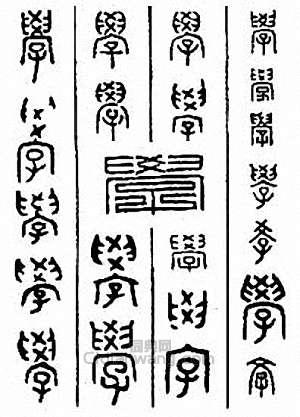 學學學學學學學
學學
學學
學
學學
學學
學學學學學